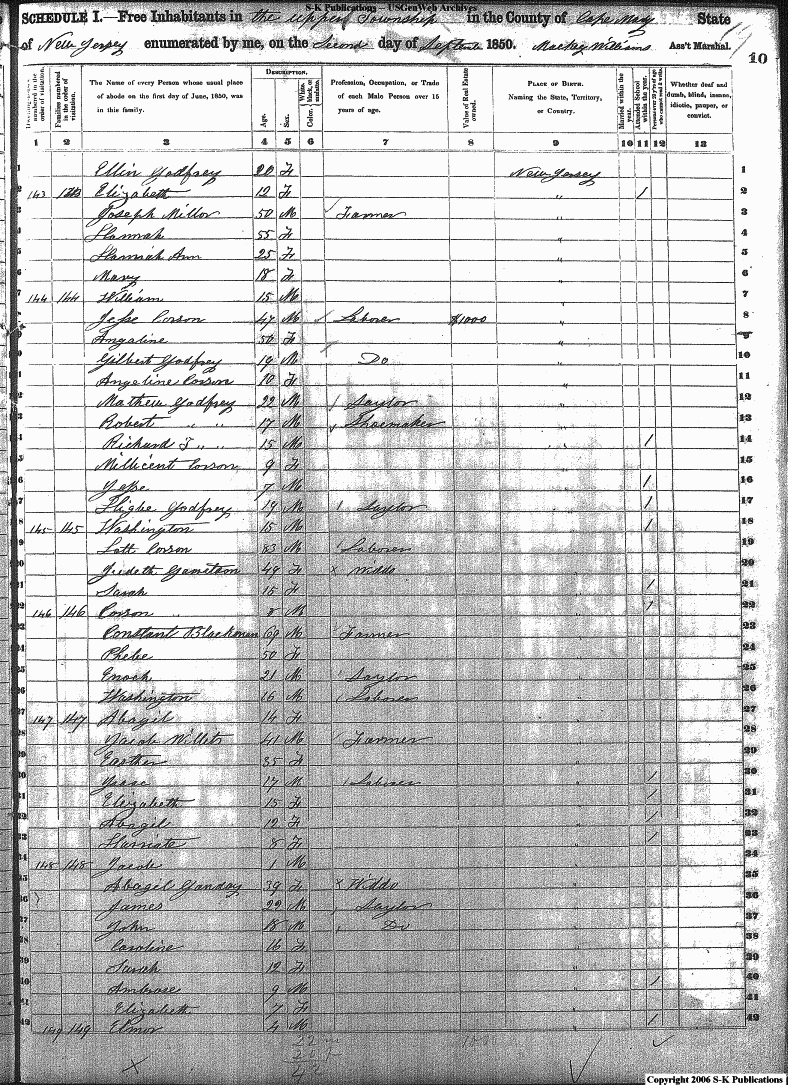 S-K Publications - USGenWeb Archives
SCHEDULE I.—Free Inhabitants in the upper Township in the County of Cape May State
of New Jersey enumerated by me, on the Second day of Septem 1850. Mackey Williams Ass't Marshal.
10
The Name of every Person whose usual place of abode on the first day of June, 1850, was in this family.
Description.
Age. Sex.
Profession, Occupation, or Trade of each Male Person over 15 years of age.
Value of Real Estate owned.
Place of Birth. Naming the State, Territory, or Country.
Married within the year.
Whether deaf and dumb, blind, insane, idiotic, pauper, or convict.
1 2 3 4 5 6 7 8 9 10 11 12 13
1 Ellin Godfrey 20 F New Jersey 1
2 143 143 Elizabeth 12 F " / 2
3 Joseph Millor 50 M Farmer " 3
4 Hannah 55 F " 4
5 Hannah Ann 25 F " 5
6 Mary 18 F " 6
7 144 144 William 15 M " 7
8 Jesse Corson 47 M Laborer $1000 " 8
9 Angaline 50 F " 9
10 Gilbert Godfrey 19 M Do " 10
11 Angeline Corson 10 F " 11
12 Mathew Godfrey 22 M Saylor " 12
13 Robert " " 17 M Shoemaker " 13
14 Richard T " " 15 M " / 14
15 Millicent Corson 9 F 15
16 Jesse 7 M / 16
17 Godfrey 19 M Saylor / 17
18 145 145 Washington 15 M / 18
19 Lott Corson 83 M Laborer 19
20 Judeth Garretson 48 F x Widdo 20
21 Sarah 15 F / 21
22 146 146 Corson " 8 M / 22
23 Constant Blackman 69 M Farmer 23
24 Phebe 50 F 24
25 Enoch 21 M Saylor 25
26 Washington 16 M Laborer 26
27 147 147 Abagil 14 F 27
28 Jacob Willets 41 M Farmer 28
29 Easther 35 F 29
30 Isaac 17 M Laborer / 30
31 Elizabeth 15 F / 31
32 Abagil 12 F / 32
33 Harriate 8 F / 33
34 148 148 Jacob 1 M 34
35 Abagil Ganday 39 F x Widdo 35
36 James 22 M Saylor 36
37 John 18 M Do 37
38 Caroline 16 F 38
39 Sarah 12 F 39
40 Ambrose 9 M / 40
41 Elizabeth 7 F 41
42 149 149 Elmor 4 M / 42
Copyright 2006 S-K Publications